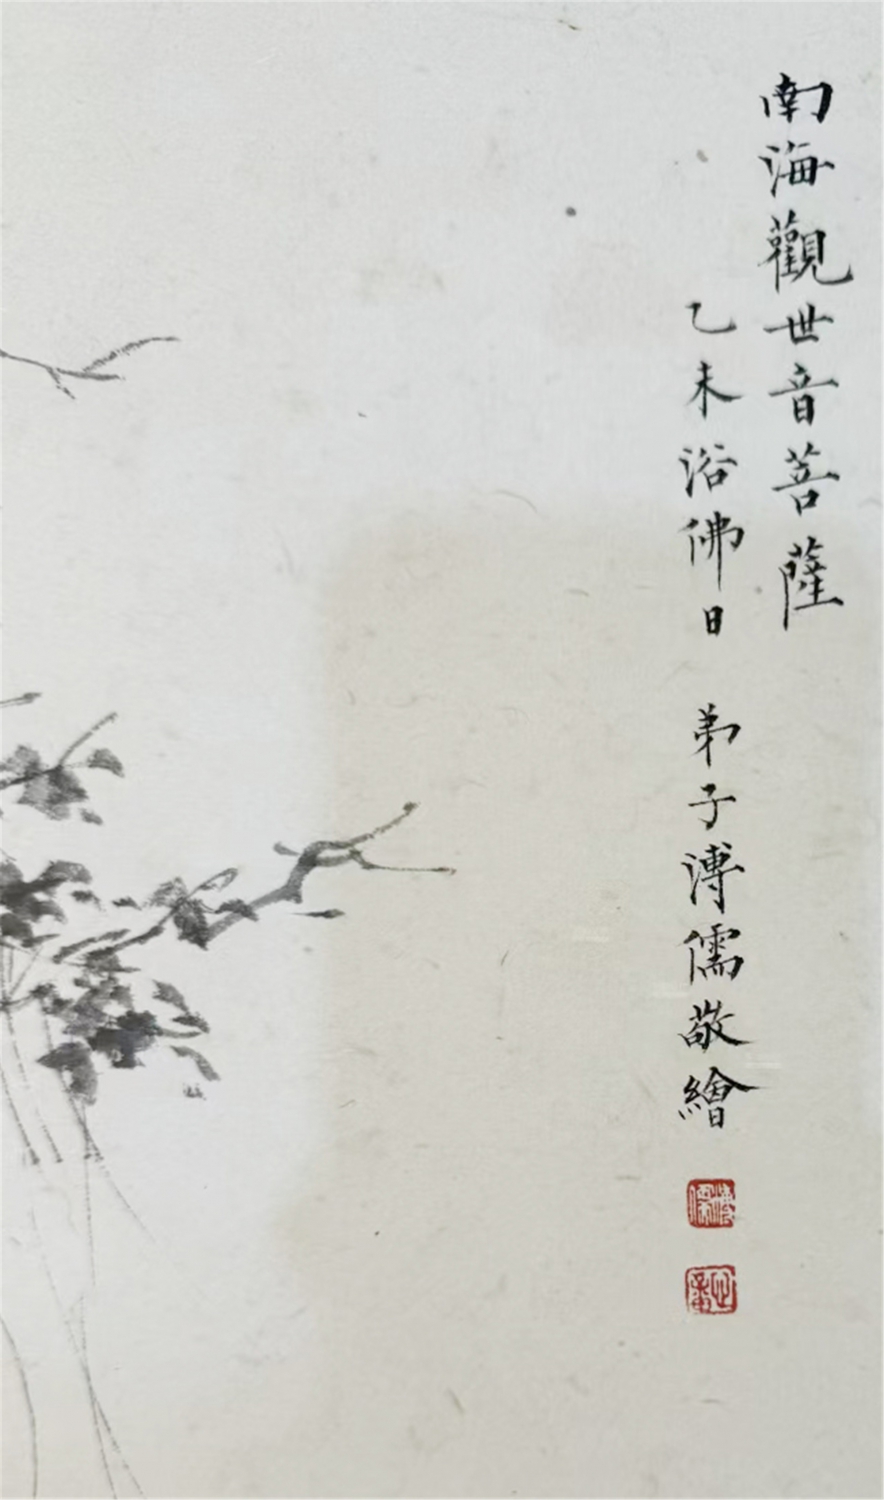 南海觀世音菩薩
乙未浴佛日 弟子溥儒敬繪
溥儒